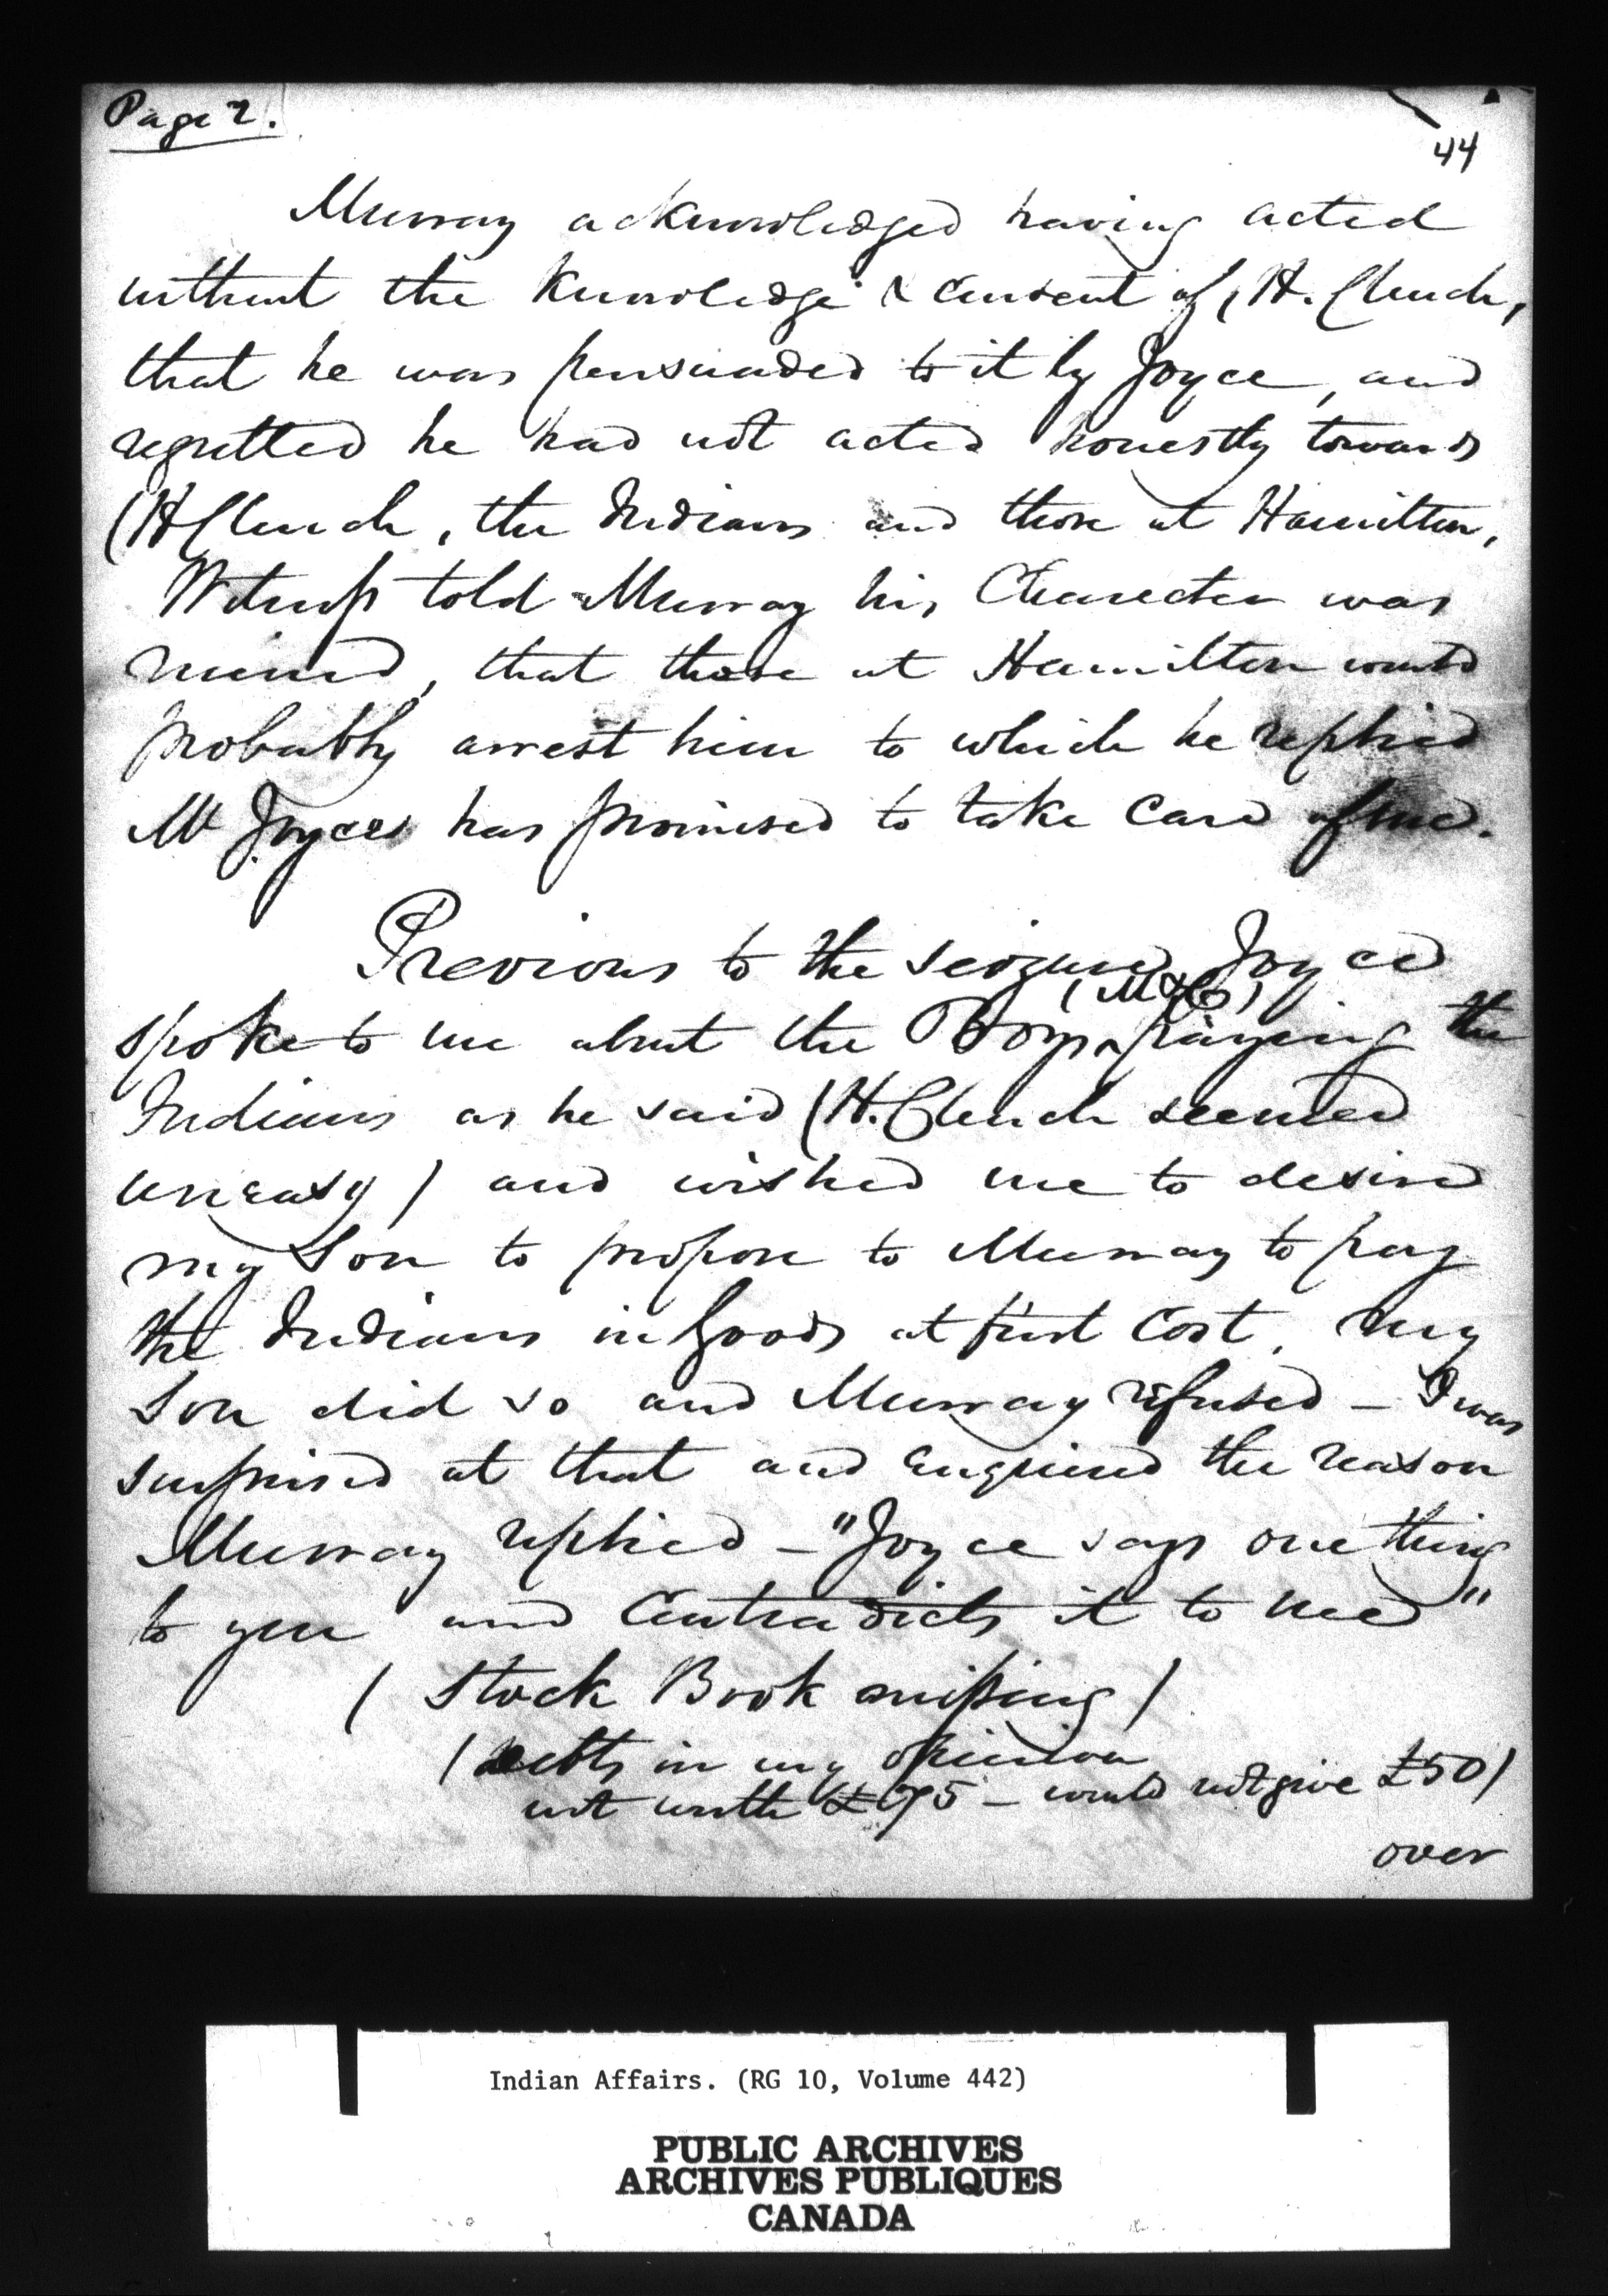 Page 2.
44
Murray acknowledged having acted
without the Knowledge & Consent of H. Clench,
that he was persuaded to it by Joyce, and
regretted he had not acted honestly towards
(H Clench, the Indians and those at Hamilton,
Witness told Murray his Character was
ruined, that those at Hamilton would
probably arrest him to which he replied
Mr Joyce has promised to take Care of me.
Previous to the seizure Joyce
(M & Co)
spoke to me about the Boys paying the
Indians as he said (H. Clench seemed
uneasy) and wished me to desire
my Son to propose to Murray to pay
the Indians in Goods at first Cost, My
Son did so and Murray refused – I was
surprised at that and enquired the reason
Murray replied – "Joyce says one thing
to you and Contradicts it to me"
( Stock Book missing )
( debts in my opinion
not worth £75 – would not give £50 )
over
Indian Affairs. (RG 10, Volume 442)
PUBLIC ARCHIVES
ARCHIVES PUBLIQUES
CANADA